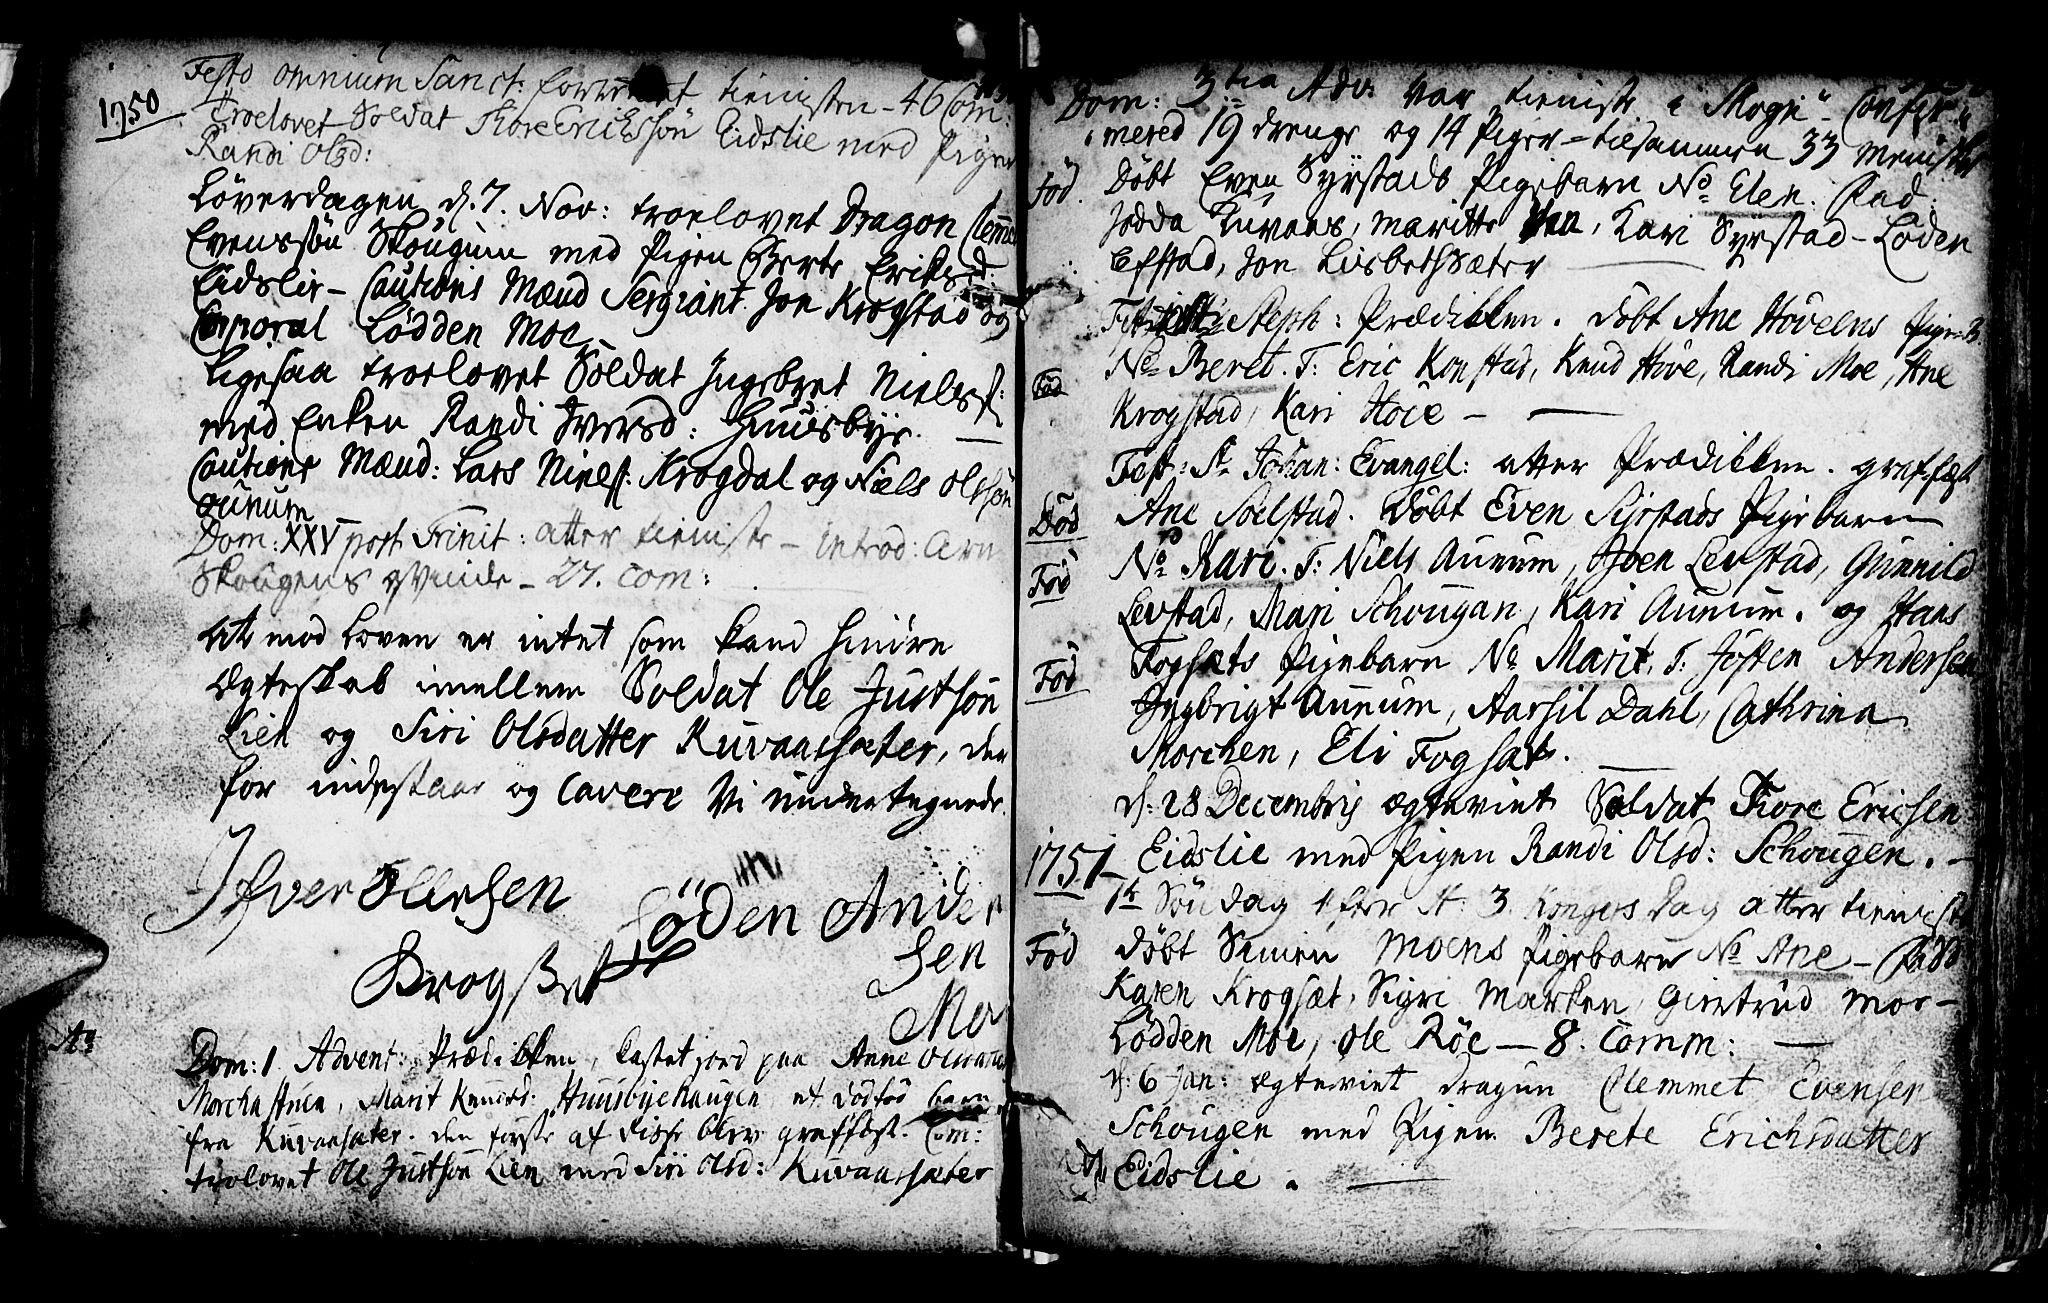 1750
Festo omnium Sanct: forrettet tienisten - 46 Com:
Troelovet Soldat Thore Erichssön Eidslie med Pigen
Randi Olsd:
Löverdagen d. 7. Nov: troelovet Dragon Clemmet
Evenssön Skougum med Pigen Berte Eriksd:
Eidslie - Cautions Mænd Sergiant Jon Krogstad og
Corporal Lödden Moe
Ligesaa troelovet Soldat Ingebret Nielss:
med Enken Randi Iversd: Huusbye.
Cautions Mænd: Lars Niels: Krogdal og Niels Olssön
Aunum
Dom: XXV post Trinit: atter tieniste - introd: Arn
Skougens qvinde - 27. Com:
At mod Loven er intet som kand hindre
Ægteskab imellem Soldat Ole Justsön
Lien og Siri Olsdatter Kuvaassæter, der
for indestaar og Cavere Vi undertegnede.
Ifver Ollesen
Krogset
Löden Ander
sen
Moe
Dom: 1 Advent: Prædikken, kastet jord paa Anne
Morchastuen, Marit Knudsd: Huusbyehaugen, et dödföd barn
fra Kuvaassæter. den første af disse blev graffæst. Com:
trolovet Ole Justsön Lien med Siri Olsd: Kuvaassæter
Dom: 3tia Adv: var tieniste i Mogn Confir-
mered 19 drenge og 14 Piger - tilsammen 33 Menisker
Föd. Döbt Even Syrstads Pigebarn No Elen. Fad:
Jodda Kuvaas, Maritte, Kari Syrstad - Loden
Efstad, Jon Lisbethsæter
Festo Steph: Prædikken. döbt Ane Hoveens Pige B
Föd No Beret. T: Eric Konstad, Knud Hove, Randi Moe, Ane
Krogstad, Kari Hove -
Fest: St Johan: Evangel: atter Prædikken. graffæst
Död Ane Soelstad. Döbt Even Syrstads Pigebarn
Föd No Kari. T: Niels Aunum, Joen Levstad, Gunnild
Levstad, Mari Schougan, Kari Aunum. og Hans
Föd Fogsæts Pigebarn No Marit. T: Josten Andersen
Ingbrigt Aunum, Aarsil Dahl, Cathrina
Morchen, Eli Fogsæt.
d: 28 Decembris ægteviet Soldat Thore Ericsen
Eidslie med Pigen Randi Olsd: Schougen. -
1751
1te Söndag efter H: 3 Kongers Dag atter tieniste
Föd döbt Simen Moens Pigebarn No Ane - Fadd
Karen Krogsæt, Sigri Marken, Giertrud Mor-
Lödden Moe, Ole Röe - 8. Comm:
d: 6 Jan: ægteviet dragun Clemmet Evensen
Schougen med Pigen Berete Erichsdatter
Eidslie.